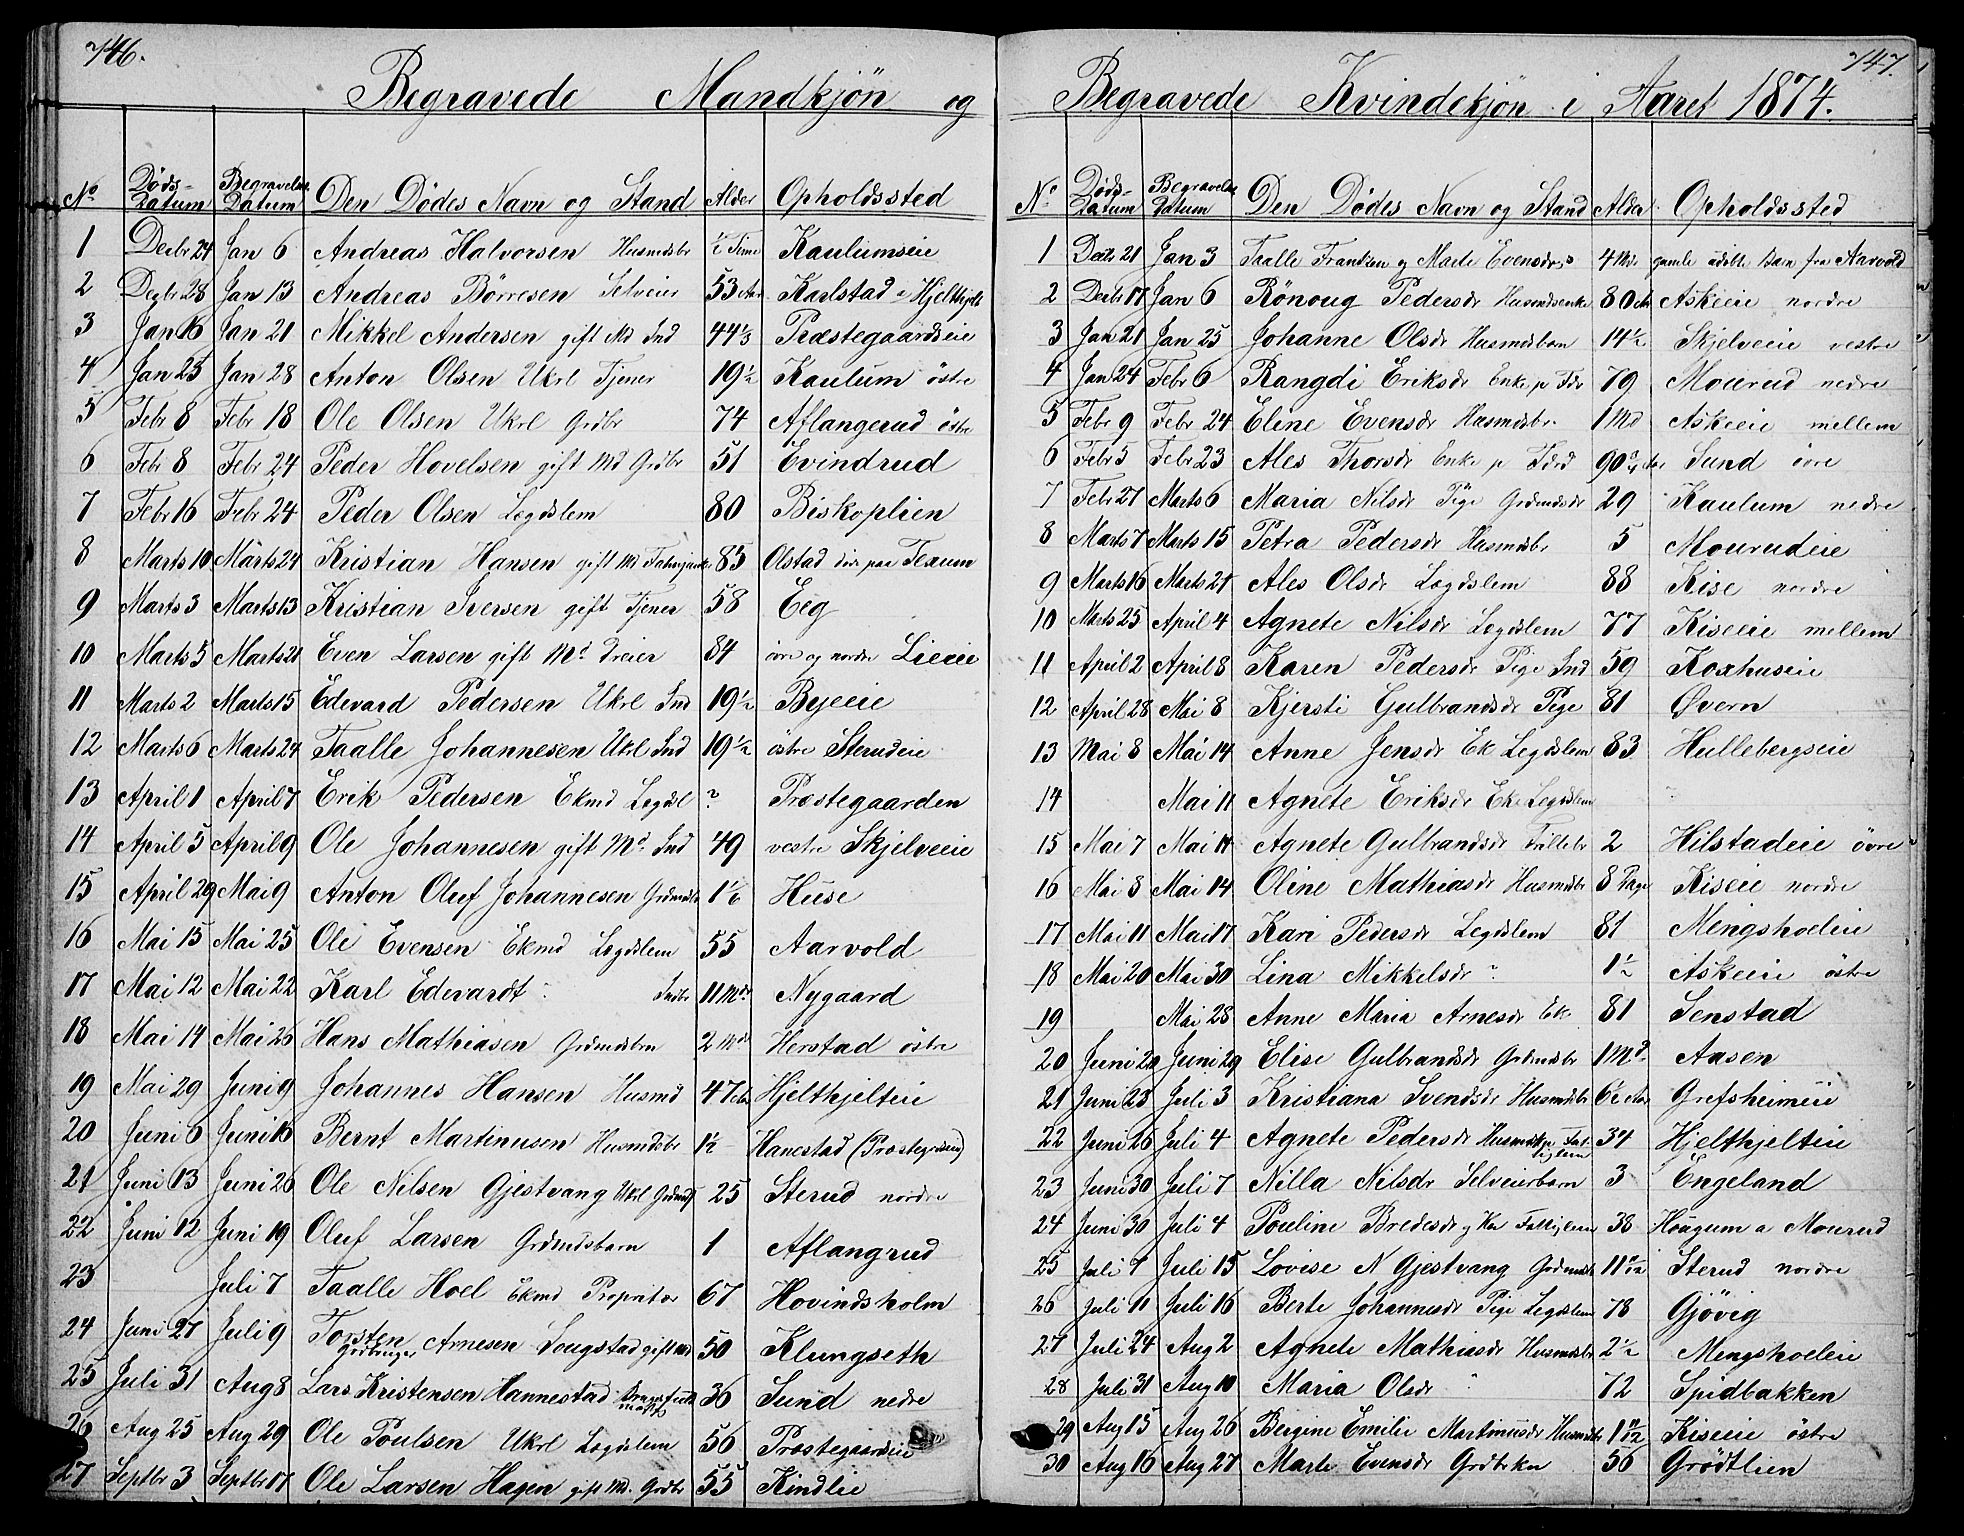 746.
Begravede Mandkjön og
No Døds-Datum Begravelses Datum Den Dödes Navn og Stand Alder Opholdssted
1 Decbr 24 Jan 6 Andreas Halvorsen Husmdsbr ½ Time Kaulumseie
2 Decbr 28 Jan 13 Andreas Börresen Selveier 53 Aar Karlstad - Hjelthjelt
3 Jan 16 Jan 21 Mikkel Andersen gift Md Ind 44⅓ Præstegaardseie
4 Jan 25 Jan 28 Anton Olsen Ukrl Tjener 19½ Kaulum östre
5 Febr 8 Febr 18 Ole Olsen Ukrl Grdbr 74 Aflangerud östre
6 Febr 8 Febr 24 Peder Hovelsen gift Md Grdbr 51 Evindrud
7 Febr 16 Febr 24 Peder Olsen Lægdslem 80 Biskoplien
8 Marts 10 Marts 24 Kristian Hansen gift Md 85 Olstad Texum
9 Marts 3 Marts 13 Kristian Iversen gift Tjener 58 Eeg
10 Marts 5 Marts 21 Even Larsen gift Md Dreier 84 övre og nordre Lieeie
11 Marts 2 Marts 15 Edevard Pedersen Ukrl Ind 19½ Byeeie
12 Marts 6 Marts 24 Taalle Johannesen Ukrl Ind 19½ östre Sterudeie
13 April 1 April 7 Erik Pedersen Ekmd Legdsl ? Præstegaarden
14 April 5 April 9 Ole Johannesen gift Md Ind 49 vestre Skjelveeie
15 April 29 Mai 9 Anton Oluf Johannesen Grdmdsbr 1⅙ Huse
16 Mai 15 Mai 25 Ole Evensen Ekmd Lægdslem 55 Aarvold
17 Mai 12 Mai 22 Karl Edevardt Indbr 11 Mdr Nygaard
18 Mai 14 Mai 26 Hans Mathiasen Grdmdsbrn 2 Mdr Herstad östre
19 Mai 29 Juni 9 Johannes Hansen Husmd 47 Aar Hjelthjelteie
20 Juni 6 Juni 16 Bernt Martinusen Husmdsbr 1½ Hanestad
21 Juni 13 Juni 26 Ole Nilsen Gjestvang Ukrl Grdmds 25 Sterud nordre
22 Juni 12 Juni 19 Oluf Larsen Grdmdsbarn 1 Aflangrud
23 Juli 7 Taalle Hoel Ekmd Propritær 67 Hovindsholm
24 Juni 27 Juli 9 Torsten Arnesen Lougstad gift Md Grdbruger 50 Klungseth
25 Juli 31 Aug 8 Lars Kristensen Hannestad 36 Sund nedre
26 Aug 25 Aug 29 Ole Poulsen Ukrl Lægdslem 56 Præstegaardseie
27 Septbr 3 Septbr 17 Ole Larsen Hagen gift Md. Grdbr 55 Kindlie
747.
Begravede Kvindekjön i Aaret 1874.
No Døds-Datum Begravelses Datum Den Dödes Navn og Stand Alder Opholdssted
1 Decbr 21 Jan 3 Taalle Frantzen og Marte Evensdrs 4 Mdr gamle udöbte Barn fra Aarvold
2 Decbr 17 Jan 6 Rönoug Pedersdr Husmdsenke 80 Aar Askeeie nordre
3 Jan 21 Jan 25 Johanne Olsdr Husmdsbarn 14½ Skjelveeie vestre
4 Jan 24 Febr 6 Rangdi Eriksdr Enke p Fdr 79 Mourud nedre
5 Febr 9 Febr 24 Eline Evensdr Husmdsbr. 1 Md Askeeie mellem
6 Febr 5 Febr 23 Ales Thorsdr Enke p Fdrd 90 Sund övre
7 Febr 27 Marts 6 Maria Nilsdr Pige Grdmdsdr 29 Kaulum nedre
8 Marts 7 Marts 15 Petra Pedersdr Husmdsbr 5 Mourudeie
9 Marts 16 Marts 21 Ales Olsdr Lægdslem 88 Kise nordre
10 Marts 25 April 4 Agnete Nilsdr Lægdslem 77 Kiseeie mellem
11 April 2 April 8 Karen Pedersdr Pige Ind 59 Koxhuseie
12 April 28 Mai 8 Kjersti Gulbrandsdr Pige 81 Øvern
13 Mai 8 Mai 14 Anne Jensdr Ek Legdslem 83 Hullebergseie
14 Mai 11 Agnete Eriksdr Eke Legdslem
15 Mai 7 Mai 11 Agnete Gulbrandsdr 2 Hilstadeie övre
16 Mai 8 Mai 14 Oline Mathiasdr Husmdsbr 8 Dage Kiseie nordre
17 Mai 11 Mai 17 Kari Pedersdr Legdslem 81 Mengshoeleie
18 Mai 20 Mai 30 Lina Mikkelsdr ? 1½ Askeeie östre
19 Mai 28 Anne Maria Arnesdr Ek. 81 Senstad
20 Juni 20 Juni 29 Elise Gulbrandsdr Grdmdsbr 1 Md. Aasen
21 Juni 23 Juli 3 Kristiana Svendsdr Husmdsbr 6½ Aar Grefsheimeie
22 Juni 26 Juli 4 Agnete Pedersdr 34 Hjelthjelteie
23 Juni 30 Juli 7 Nilla Nilsdr Selveierbarn 3 Engeland
24 Juni 30 Juli 4 Pouline Bredesdr 38 Hougum a Mourud
25 Juli 7 Juli 15 Lovise N Gjestvang Grdmdsbr 11 Sterud nordre
26 Juli 11 Juli 16 Berte Johannesdr Pige Legdslem 78 Gjövig
27 Juli 24 Aug 2 Agnete Mathiasdr Husmdsbr 2½ Mengshoeleie
28 Juli 31 Aug 10 Maria Olsdr 72 Spidbakken
29 Aug 15 Aug 26 Bergine Emilie Martinusdr Husmdsbr 1 11/12 Kiseeie östre
30 Aug 16 Aug 27 Marte Evensdr Grdbrkr 56 Grödtlien